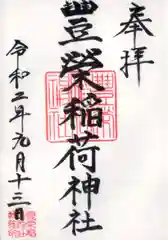 奉拝
豐榮稲荷神社
令和二年九月十三日